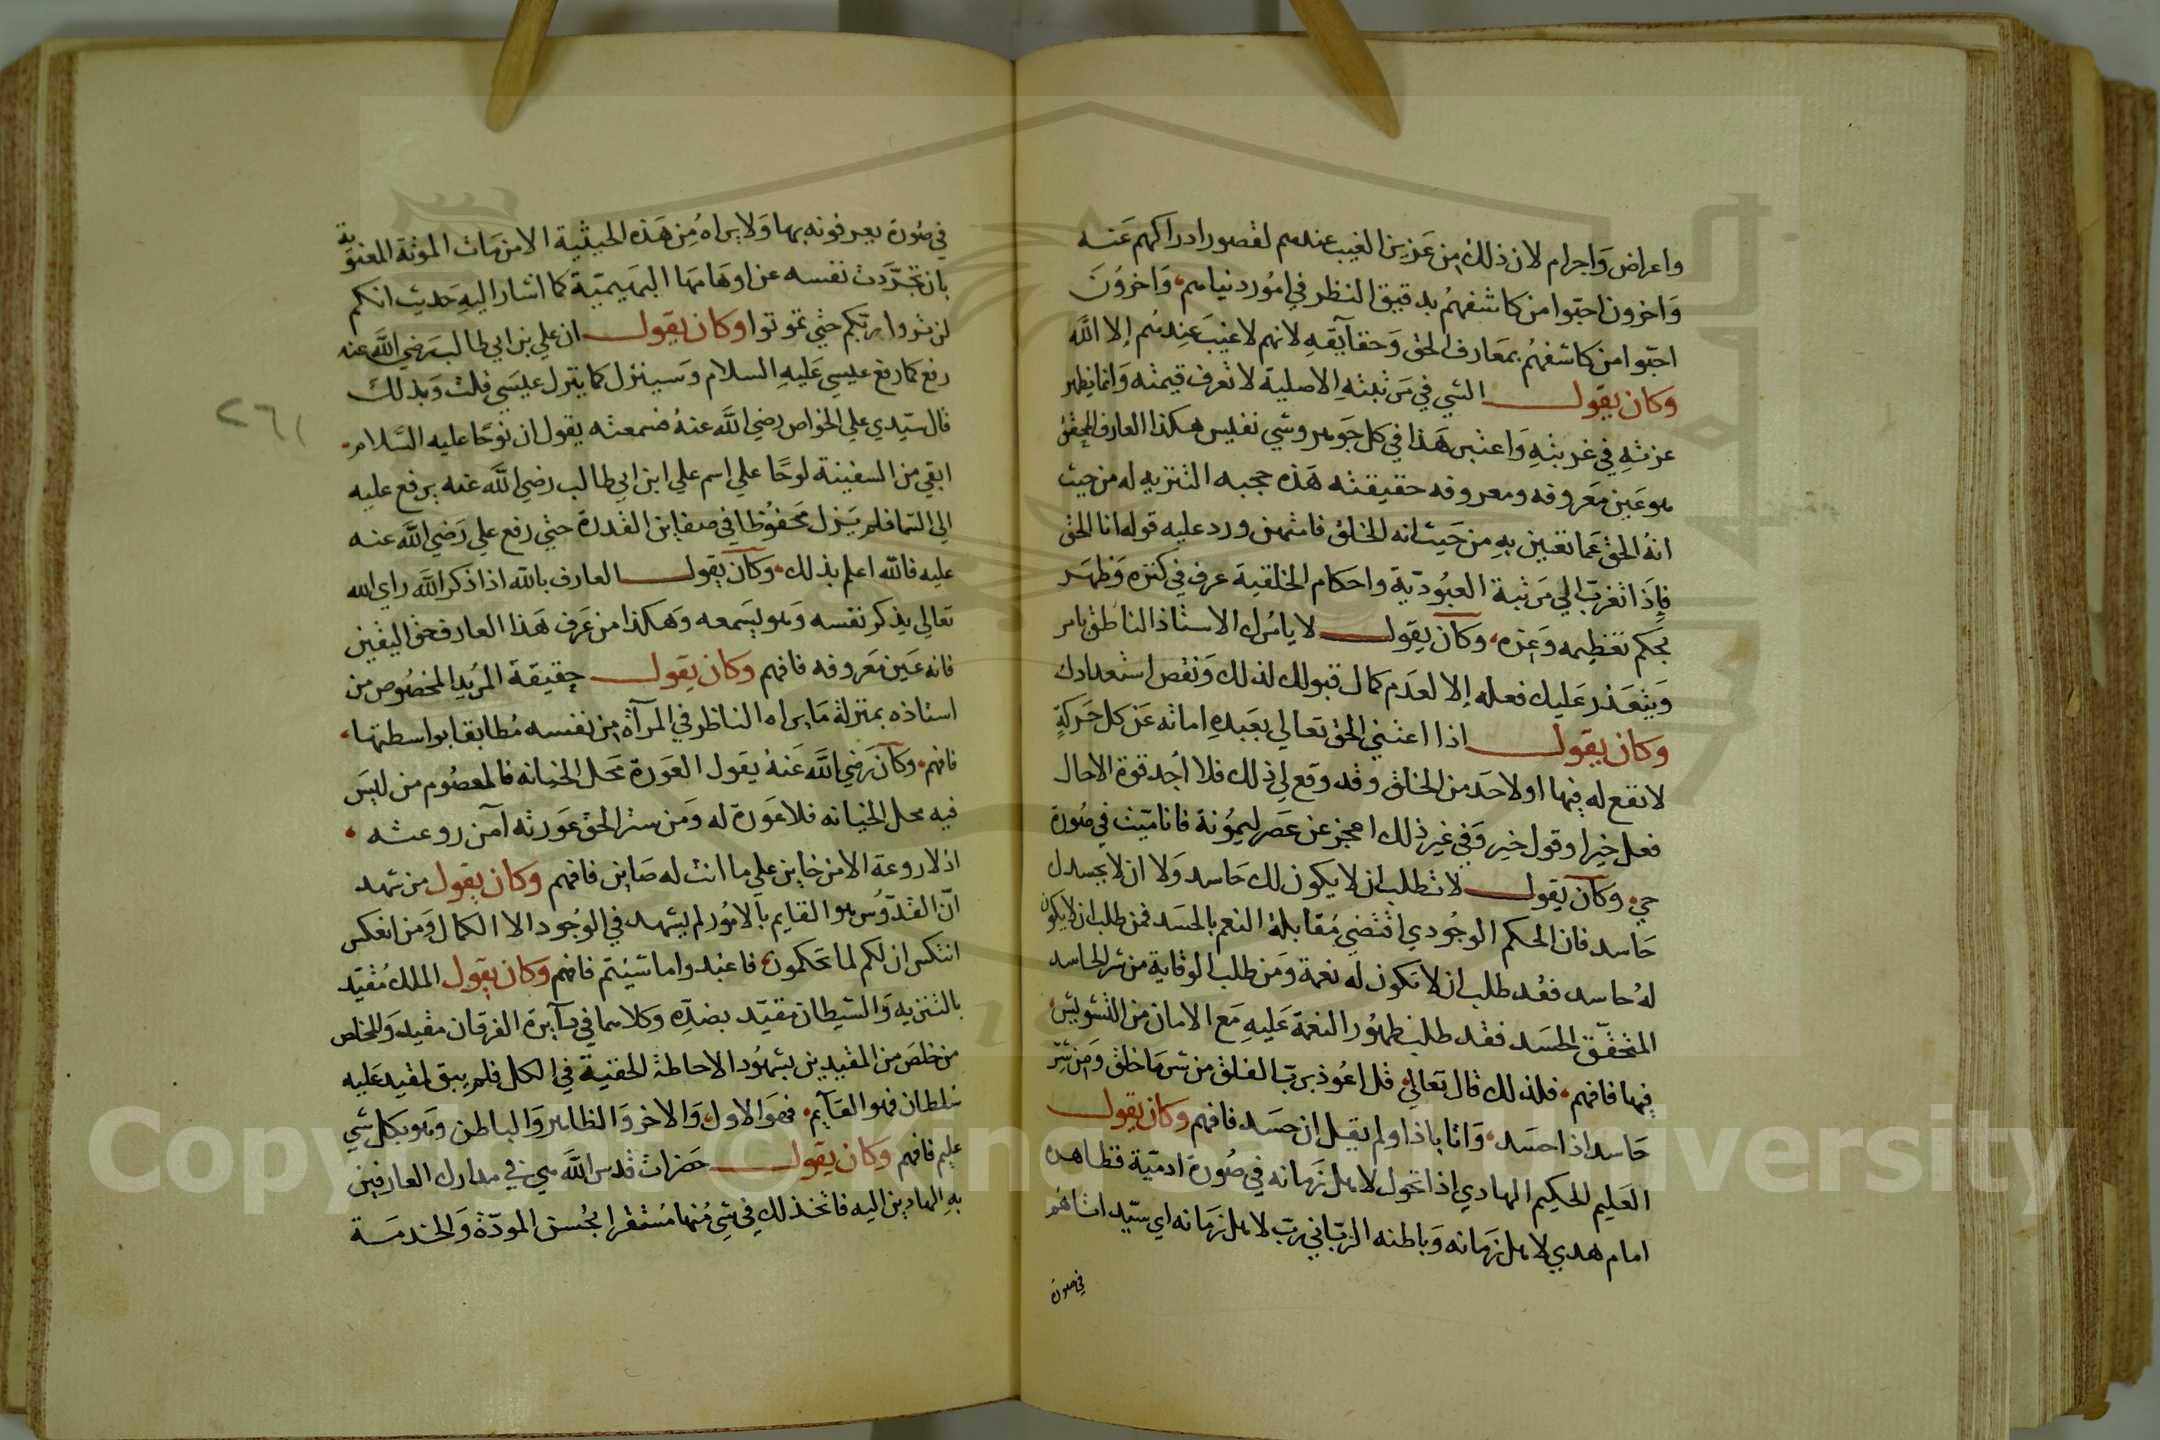 واعراض وَاجرام لان ذلك من عَزيز الغيب عندهم لقصور ادراكهم عَنه
وَاخرون احبّوا من كاشفهمُ بدقيق النظر في امُور دنياهم، وَاخروُنَ
احبّوا من كاشفهُم بمَعَارف الحق وَحقآيقهِ لانهم لاغيبَ عِندهُم إلا الله
وكان يقول الشي في مَرتبتهِ الاصلية لا تعرف قيمته وَانما يظهر
عزتهِ في غربتهِ وَاعتبر هَذا في كل جَوهر وشي نفيس هكذا العارف المحقق
هو عَين مَعَروفه ومعروفه حقيقته هَذه حجبه التنزيه له من حيث
انهُ الحق عَما تعَين بهِ من حَيث انه الخلق فامتهن ورد عليه قوله انا الحق
فإذَا تغربّ الي مَرتبة العبُوديّة واحكام الخلقية عرف في كنزه وَظهَر
بحكم تعَظِيمه وَعِزه، وكآن يقول لا يامُرك الاستاذ الناطق بامر
وَيتعَذر عَليك فعله إلا لعدَم كمال قبولك لذلك وَنقص استعدادك
وكان يقول اذا اعتني الحق تعَالي بعَبدهِ اماته عَن كل حَركةٍ
لا نفع له فِيها اولاحَد من الخلق وقد وقع لي ذلك فلا اجُد قوة الاحال
فعل خيرا وقول خير وَفي غير ذلك اعجز عن عَصر ليمُونة فانا ميّت في صُورة
حي، وكآن يقول لاتطلب ان لايكون لك حَاسد وَلا ان لا يحسدك
حَاسد فان الحكم الوجُودي اقتضي مُقابلة النعم بالحَسَد فمن طلب ان لايكون
لهُ حاسد فقُد طلب ان لاتكون لهُ نعمة وَمن طلب الوقاية من شر الحاسد
المتحقّق الحَسَد فقد طلب ظهوُر النعمة عَليهِ مَع الامان من التشويش
فِيها فافهم، فلذلك قال تعَالي، قل اعُوذ بربّ الفلق من شر مَاخلق وَمِن شرّ
حَاسد اذا حسَد، وَاتا باذا ولم يقل ان حسَد فافهم وكان يقول
العَليم الحكيم الهادي إذا تحول لاهل زمانه في صُورة ادميّة فظاهره
امام هدي لاهل زمَانه وَباطنه الربّاني ربّ لاهل زمَانه اي سيّد اتاهُم
في صورة
في صُورة يعرفونه بها وَلايراه مِن هَذه الحيثية الامن مَات الموتة المعنوية
بان تجرّدَت نفسه عن اوهَامهَا البَهيميّة كما اشار اليهِ حَديث انكم
لن تروا ربّكم حتي تموتوا وكان يقول ان علي بن ابي طالب رَضي الله عنه
رفع كما رفع عيسي عَليهِ السلام وَسينزل كما ينزل عيسَي قلت وَبذلك
قال سيّدي علي الخواص رضي الله عنهُ فسمعته يقول ان نوحًا عليه السّلام
ابقي من السفينة لوحًا علي اسم علي ابن ابي طالب رضي الله عنه يرفع عليه
الي السّما فلم يَزل محَفُوظا في صفاين القدرة حتي رفع علي رَضي الله عنه
عليه فالله اعلم بذلك، وَكآن يقول العارف بالله اذا ذكر الله راي الله
تعالي يذكر نفسه وَهو يسَمعه وَهكذا من عَرف هَذا العارف حق اليقين
فانه عَين مَعَروفه فافهم وكان يقول حِقيقة المُريد المخصُوص من
استاذه بمنزلة مَايراه الناظر في المرآة مِن نفسه مُطابقا بواسطتها،
فافهم، وكآن رَضي الله عَنهُ يقول العَورة محَل الخيانه فالمعصُوم من ليسَ
فيه محل الخيانه فلا عَورة له وَمَن ستر الحق عَورته آمن روعته
اذ لا روعة الامن خاين علي ما انت له صَاين فافهم وكان يقول من شهد
انّ القدّوُس هو القايم بالامُور لم يشهد في الوُجود الا الكمال وَمن انعكس
انتكس ان لكم لما تحَكمون، فاعبدوا ما شيُتم فافهم وكان يقول الملك مُقيّد
بالتنزيه وَالشيطان مقيّد بضدّهِ وكلاهما في دآيرة الفرقان مقيد وَالمخلص
من خلصَ من المقيدين بشهُود الاحاطة الحقنية في الكل فلم يبق لمقيد عَليه
سُلطان فهو القآيم، فهوَ الاول، وَالاخر وَالظاهر وَالباطن وَهو بكل شي
عليم فافهم وكان يقول حَضرات قدس الله هي في مدارك العارفين
بهِ الهادين اليه فاتخذ لك في شي مُنها مُستقرا بحُسن المودّة وَالخدمَة
٢٦١
Copyright © King Saud University